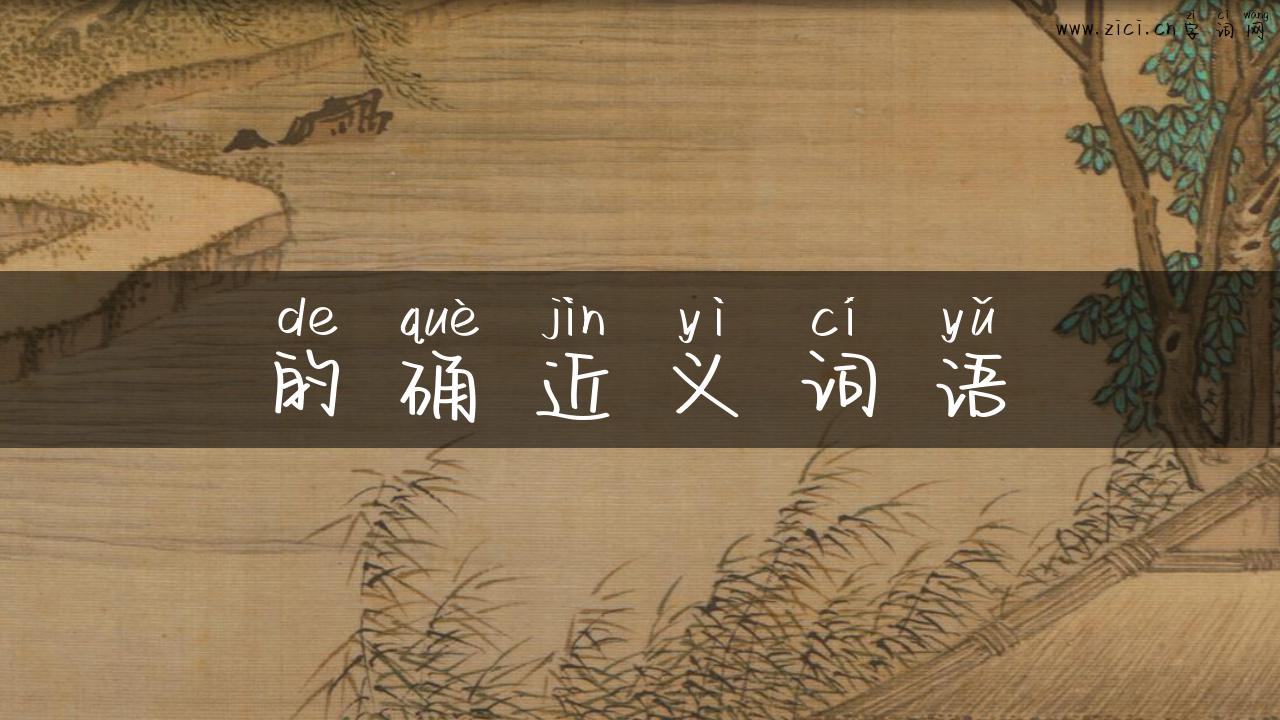 zì cí wǎng
www.zici.cn字词网
de què jìn yì cí yǔ
的确近义词语